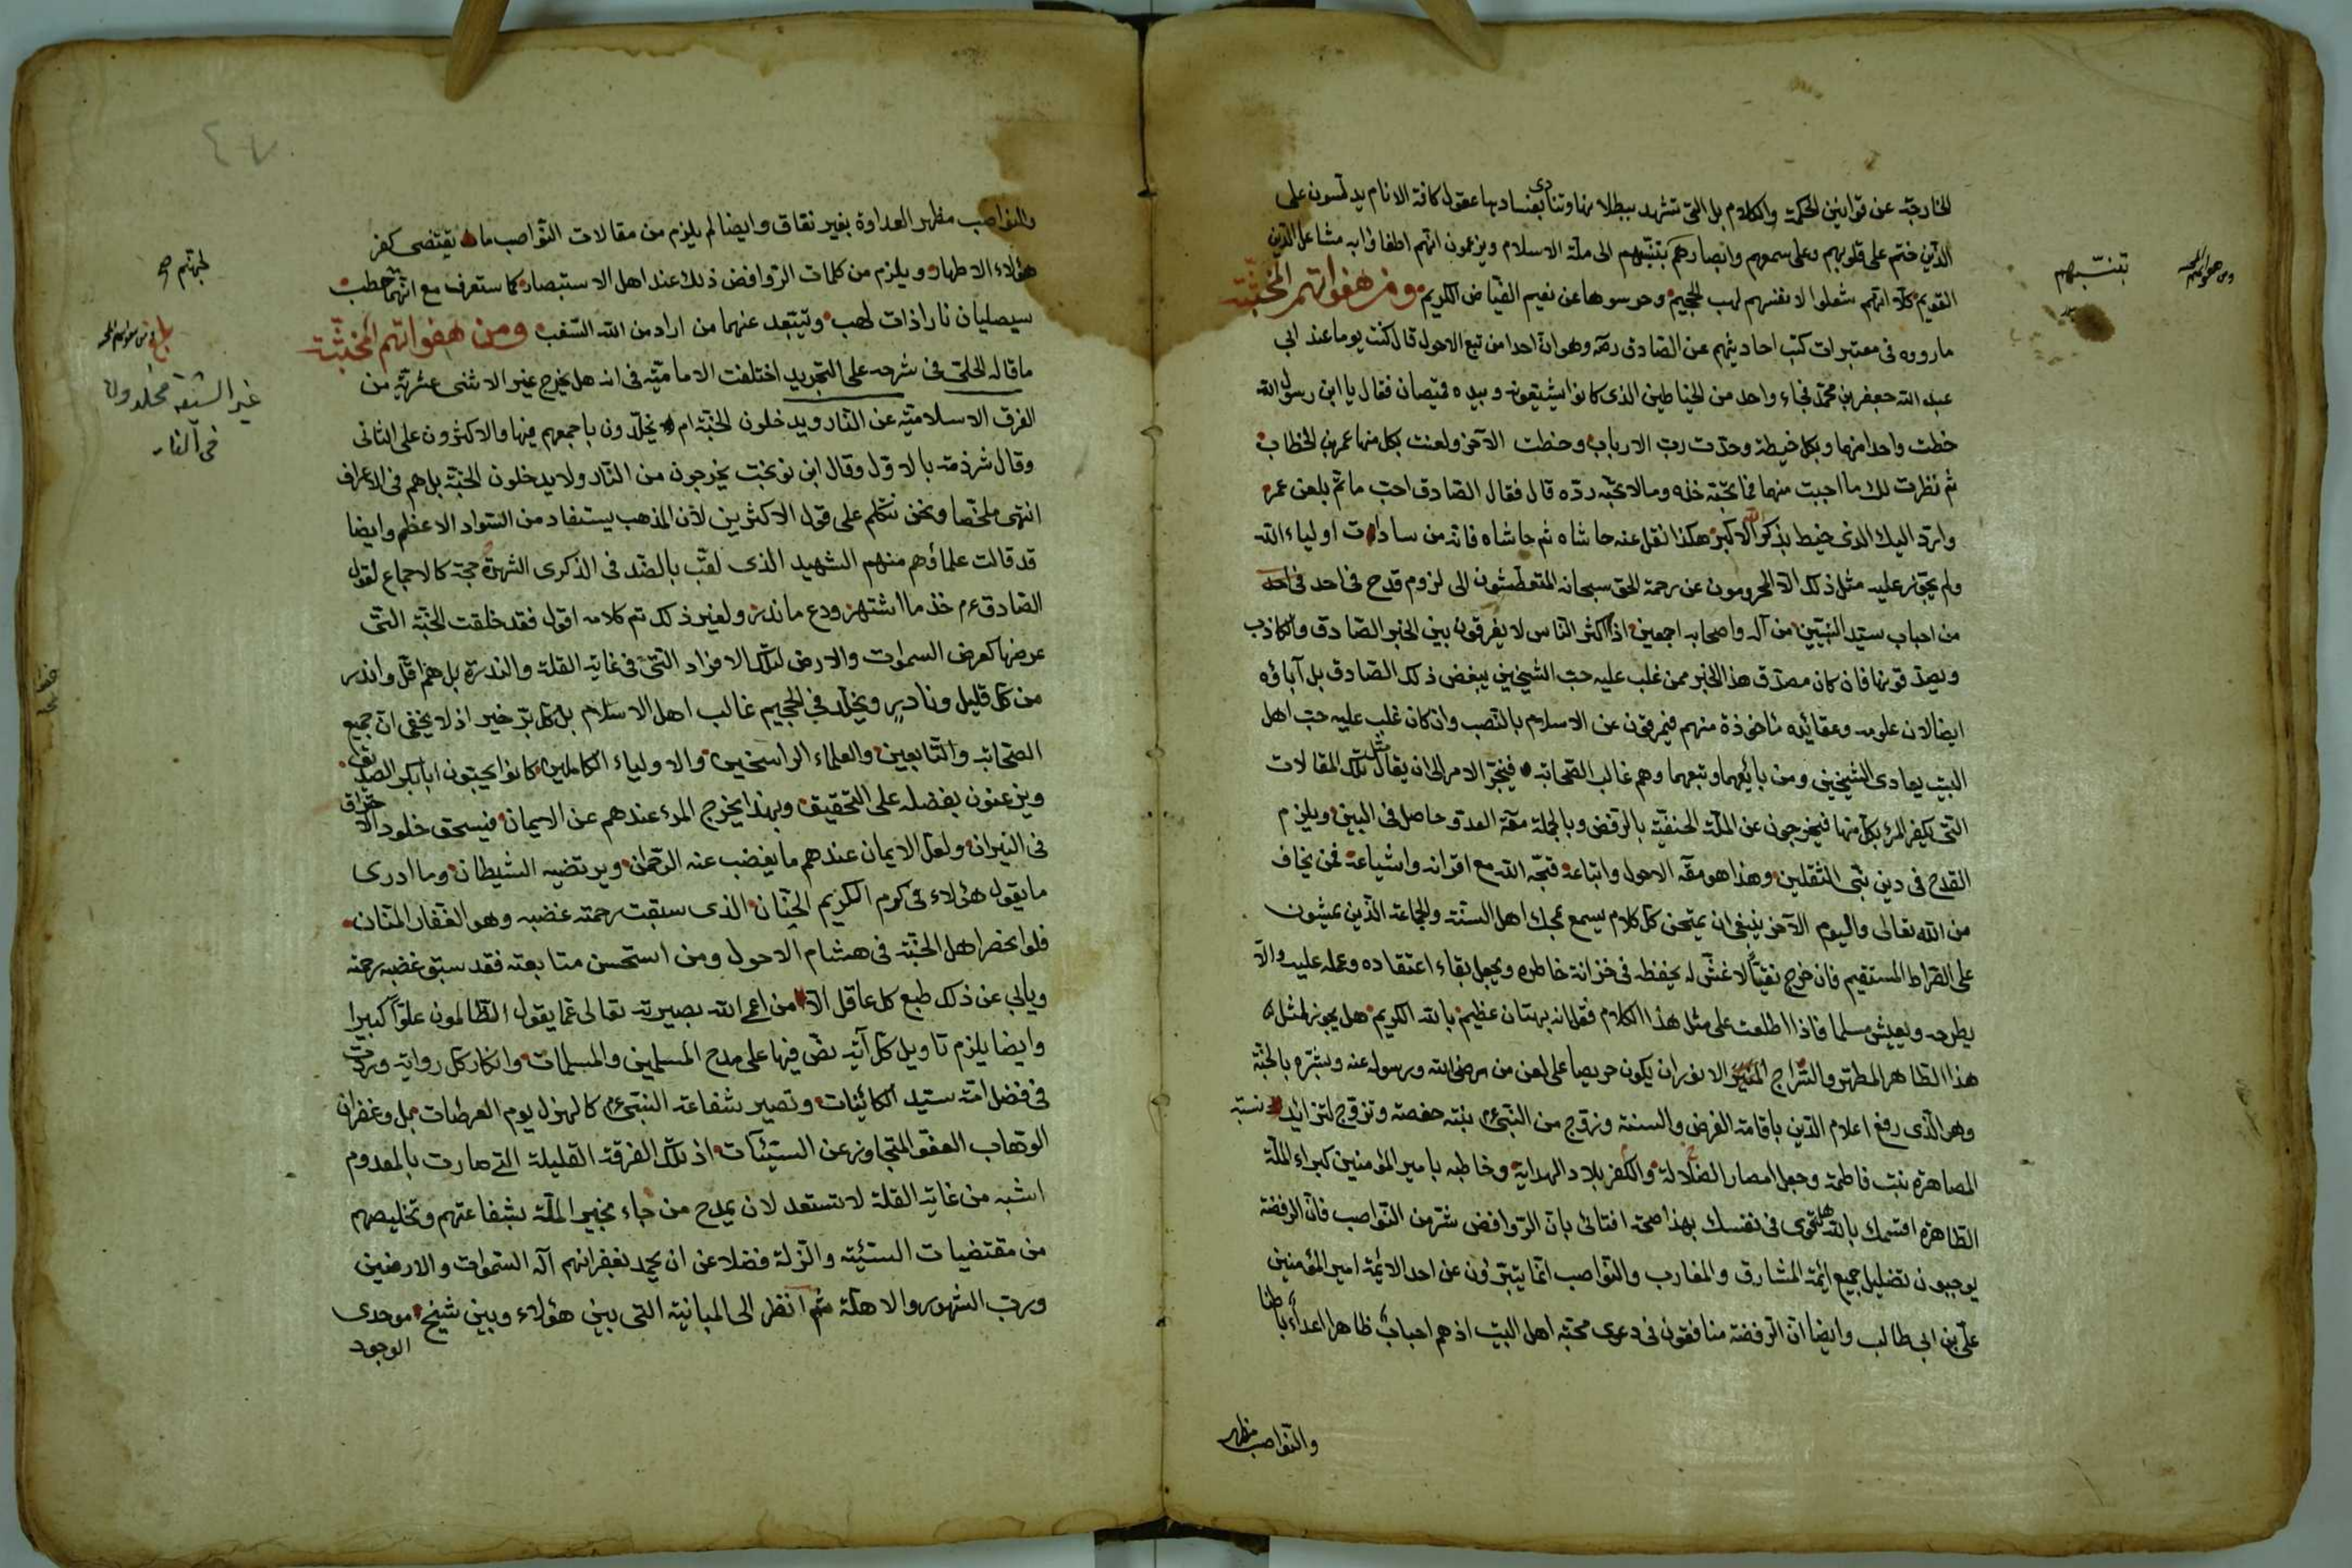 الخارجة عن قوانين الحكمة والكلام بل التى تشهد ببطلانها وتنادى بفسادها عقول كافة الانام يدلسون على
الذين ختم على قلوبهم وعلى سمعهم وابصارهم بتنبيههم الى ملة الاسلام ويزعمون انهم اطفاؤا به مشاعل الدين
القويم كلا انهم شعلوا لانفسهم لهب الجحيم وحرسوها عن نعيم الفياض الكريم ومن هفواتهم الخبيثة
ما رووه فى معتبرات كتب احاديثهم عن الصادق رضه وهو ان احدا من تبع الاحول قال كنت يوما عند ابى
عبد الله جعفر بن محمد فجاء واحد من الخياطين الذى كانوا شيعته وبيده قميصان فقال يا ابن رسول الله
خطت واحدا منهما وبكل خيطة وحدت رب الارباب وخطت الآخر ولعنت بكل منها عمر بن الخطاب
ثم نظرت لك ما احببت منهما فما تحبه خذه وما لا تحبه رده قال فقال الصادق احب ما تم بلعن عمر
وارد اليك الذى خيط بذكر الله الاكبر هكذا نقل عنه حاشاه ثم حاشاه فانه من سادات اولياء الله
ولم يجوز عليه مثل ذلك الا المحرومون عن رحمة الحق سبحانه المتعطشون الى لزوم قدح فى احد
من احباب سيد النبيين من آله واصحابه اجمعين اذ اكثر الناس لا يفرقون بين الخبر الصادق والكاذب
ويصدقونها فان كان مصدق هذا الخبر ممن غلب عليه حب الشيخين يبغض ذلك الصادق بل آباؤه
ايضا لان علومه وعقائده مأخوذة منهم فيمرقون عن الاسلام بالنصب وان كان غلب عليه حب اهل
البيت يعادى الشيخين ومن بايعهما وتبعهما وهم غالب الصحابة فينجر الامر الى ان يقال مثل تلك المقالات
التى يكفر المرء بكل منها فيخرجون عن الملة الحنفية بالرفض وبالجملة مقة العدو حاصل فى البين ويلزم
القدح فى دين نبى الثقلين وهذا هو مقه الاحول واتباعه قبحه الله مع اقرانه واشياعه فمن يخاف
من الله تعالى واليوم الآخر ينبغى ان يمتحن كل كلام يسمع بمحك اهل السنة والجماعة الذين يمشون
على الصراط المستقيم فان خرج نقيا لا غش له يحفظه فى خزانة خاطره ويجعل بقاء اعتقاده وعمله عليه والا
يطرحه ويعيش مسلما فاذا اطلعت على مثل هذا الكلام فقل انه بهتان عظيم بالله الكريم هل يجوز لمثل
هذا الطاهر المطهر والسراج المنير الانور ان يكون حريصا على لعن من رضى الله ورسوله عنه وبشره بالجنة
وهو الذى رفع اعلام الدين باقامة الفرض والسنة وزوج من النبى عم بنته حفصة وتزوج لتزايد نسبة
المصاهرة بنت فاطمة وجعل امصار الضلالة والكفر بلاد الهداية وخاطبه بامير المؤمنين كبراء الملة
الطاهرة اقسمك بالله هل تقوى فى نفسك بهذا صحة افتائى بان الروافض شر من النواصب فان الرفضة
يوجبون تضليل جميع ائمة المشارق والمغارب والنواصب انما يتبرؤن عن احد الائمة امير المؤمنين
على بن ابى طالب وايضا ان الرفضة منافقون فى دعوى محبة اهل البيت اذ هم احباب ظاهرا اعداء باطنا
والنواصب مظهر
بتنبيههم
والنواصب مظهر العداوة بغير نفاق وايضا لم يلزم من مقالات النواصب ما يقتضى كفر
هؤلاء الاطهار ويلزم من كلمات الروافض ذلك عند اهل الاستبصار كما ستعرف مع انهما حطب
سيصليان نارا ذات لهب ويتبعد عنهما من اراد من الله السغب ومن هفواتهم الخبيثة
ما قاله الحلى فى شرحه على التجريد اختلفت الامامية فى انه هل يخرج غير الاثنى عشرية من
الفرق الاسلامية عن النار ويدخلون الجنة ام يخلدون باجمعهم فيها والاكثرون على الثانى
وقال شرذمة بالاول وقال ابن نوبخت يخرجون من النار ولا يدخلون الجنة بل هم فى الاعراف
انتهى ملخصا ونحن نتكلم على قول الاكثرين لان المذهب يستفاد من السواد الاعظم وايضا
قد قالت علماؤهم منهم الشهيد الذى لقب بالضد فى الذكرى الشهرة حجة كالاجماع لقول
الصادق عم خذ ما اشتهر ودع ما ندر ولغير ذلك تم كلامه اقول فقد خلقت الجنة التى
عرضها كعرض السموات والارض لتلك الافراد التى فى غاية القلة والندرة بل هم اقل واندر
من كل قليل ونادر ويخلد فى الجحيم غالب اهل الاسلام بل كل بر خير اذ لا يخفى ان جميع
الصحابة والتابعين والعلماء الراسخين والاولياء الكاملين كانوا يحبون ابا بكر الصديق
ويزعنون بفضله على التحقيق وبهذا يخرج المرء عندهم عن الايمان فيستحق خلود الاحتراق
فى النيران ولعل الايمان عندهم ما يغضب عنه الرحمن ويرتضيه الشيطان وما ادرى
ما يقول هؤلاء فى كرم الكريم الحنان الذى سبقت رحمته غضبه وهو الغفار المنان
فلو انحصر اهل الجنة فى هشام الاحول ومن استحسن متابعته فقد سبق غضبه رحمته
ويابى عن ذلك طبع كل عاقل الا من اعمى الله بصيرته تعالى عما يقول الظالمون علوا كبيرا
وايضا يلزم تاويل كل آية نص فيها على مدح المسلمين والمسلمات وانكار كل رواية وردت
فى فضل امة سيد الكائنات وتصير شفاعة النبى عم كالهزل يوم العرصات بل وغفران
الوهاب العفو المتجاوز عن السيئات اذ تلك الفرقة القليلة التى صارت بالمعدوم
اشبه من غاية القلة لا تستعد لان يمدح من جاء بخير الملة بشفاعتهم وتخليصهم
من مقتضيات السيئة والزلة فضلا عن ان يحمد بغفرانهم آله السموات والارضين
ورب الشهور والاهلة ثم انظر الى المباينة التى بين هؤلاء وبين شيخ موحدى
الوجود
غير الشيعة مخلدون
فى النار